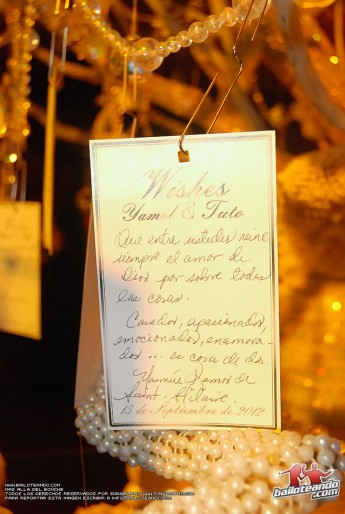 Wishes
Yamel & Tuto
Que entre ustedes reine
siempre el amor de
Dios por sobre todas
las cosas.
Casados, apasionados,
emocionados, enamora-
dos ... es cosa de dos.
Yasmín Ramos de
Saint-Hilaire.
15 de Septiembre de 2012
WWW.BAILOTEANDO.COM
MAS ALLA DEL BONCHE
TODOS LOS DERECHOS RESERVADOS POR
PARA REPORTAR ESTA IMAGEN ESCRIBA A INFO@BAILOTEANDO.COM
bailoteando.com
bailoteando.com